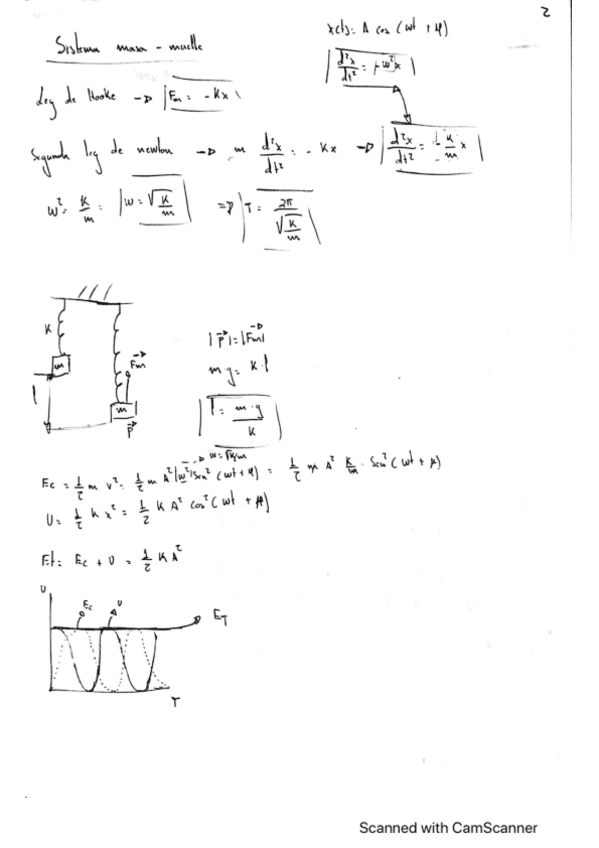 2
x(t) = A cos (wt + φ)
Sistema masa - muelle
d²x/dt² = -w²x
Ley de Hooke → Fm = - Kx
Segunda ley de newton → m d²x/dt² = - Kx → d²x/dt² = - K/m x
w² = K/m = w = √(K/m) ⇒ T = 2π/√(K/m)
K
m
Fm
l
m
P
|P| = |Fm|
m·g = K·l
l = m·g/K
w = √K/m
Ec = 1/2 m v² = 1/2 m A² w² sen² (wt + φ) = 1/2 m A² K/m · Sen² (wt + φ)
U = 1/2 K x² = 1/2 K A² cos² (wt + φ)
Et = Ec + U = 1/2 K A²
U
Ec
U
ET
T
Scanned with CamScanner